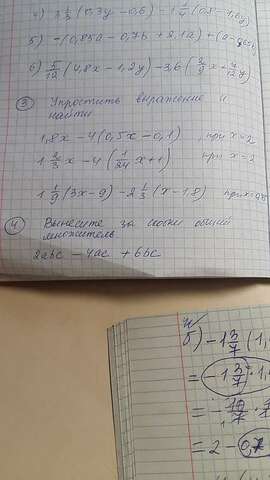 4) 2 1/3 (0,3y - 0,6) - 1 1/7 (0,8 - 1,6y)
5) -(0,85a - 0,7b + 2,1a) + (a -
6) 5/12 (4,8x - 1,2y) - 3,6 (2/9 x - 7/12 y)
③ Упростить выражение и
найти
1,8x - 4(0,5x - 0,1) , при x = 2
1 2/3 x - 4 ( 1/24 x + 1) при x = 2
1 1/9 (3x - 9) - 2 1/3 (x - 18) при x =
④ Вынесите за скобки общий
множитель
2abc - 4ac + 6bc
б) -1 3/7 (1,
= -1 3/7 · 1,
= - 10/7 ·
= 2 - 0,